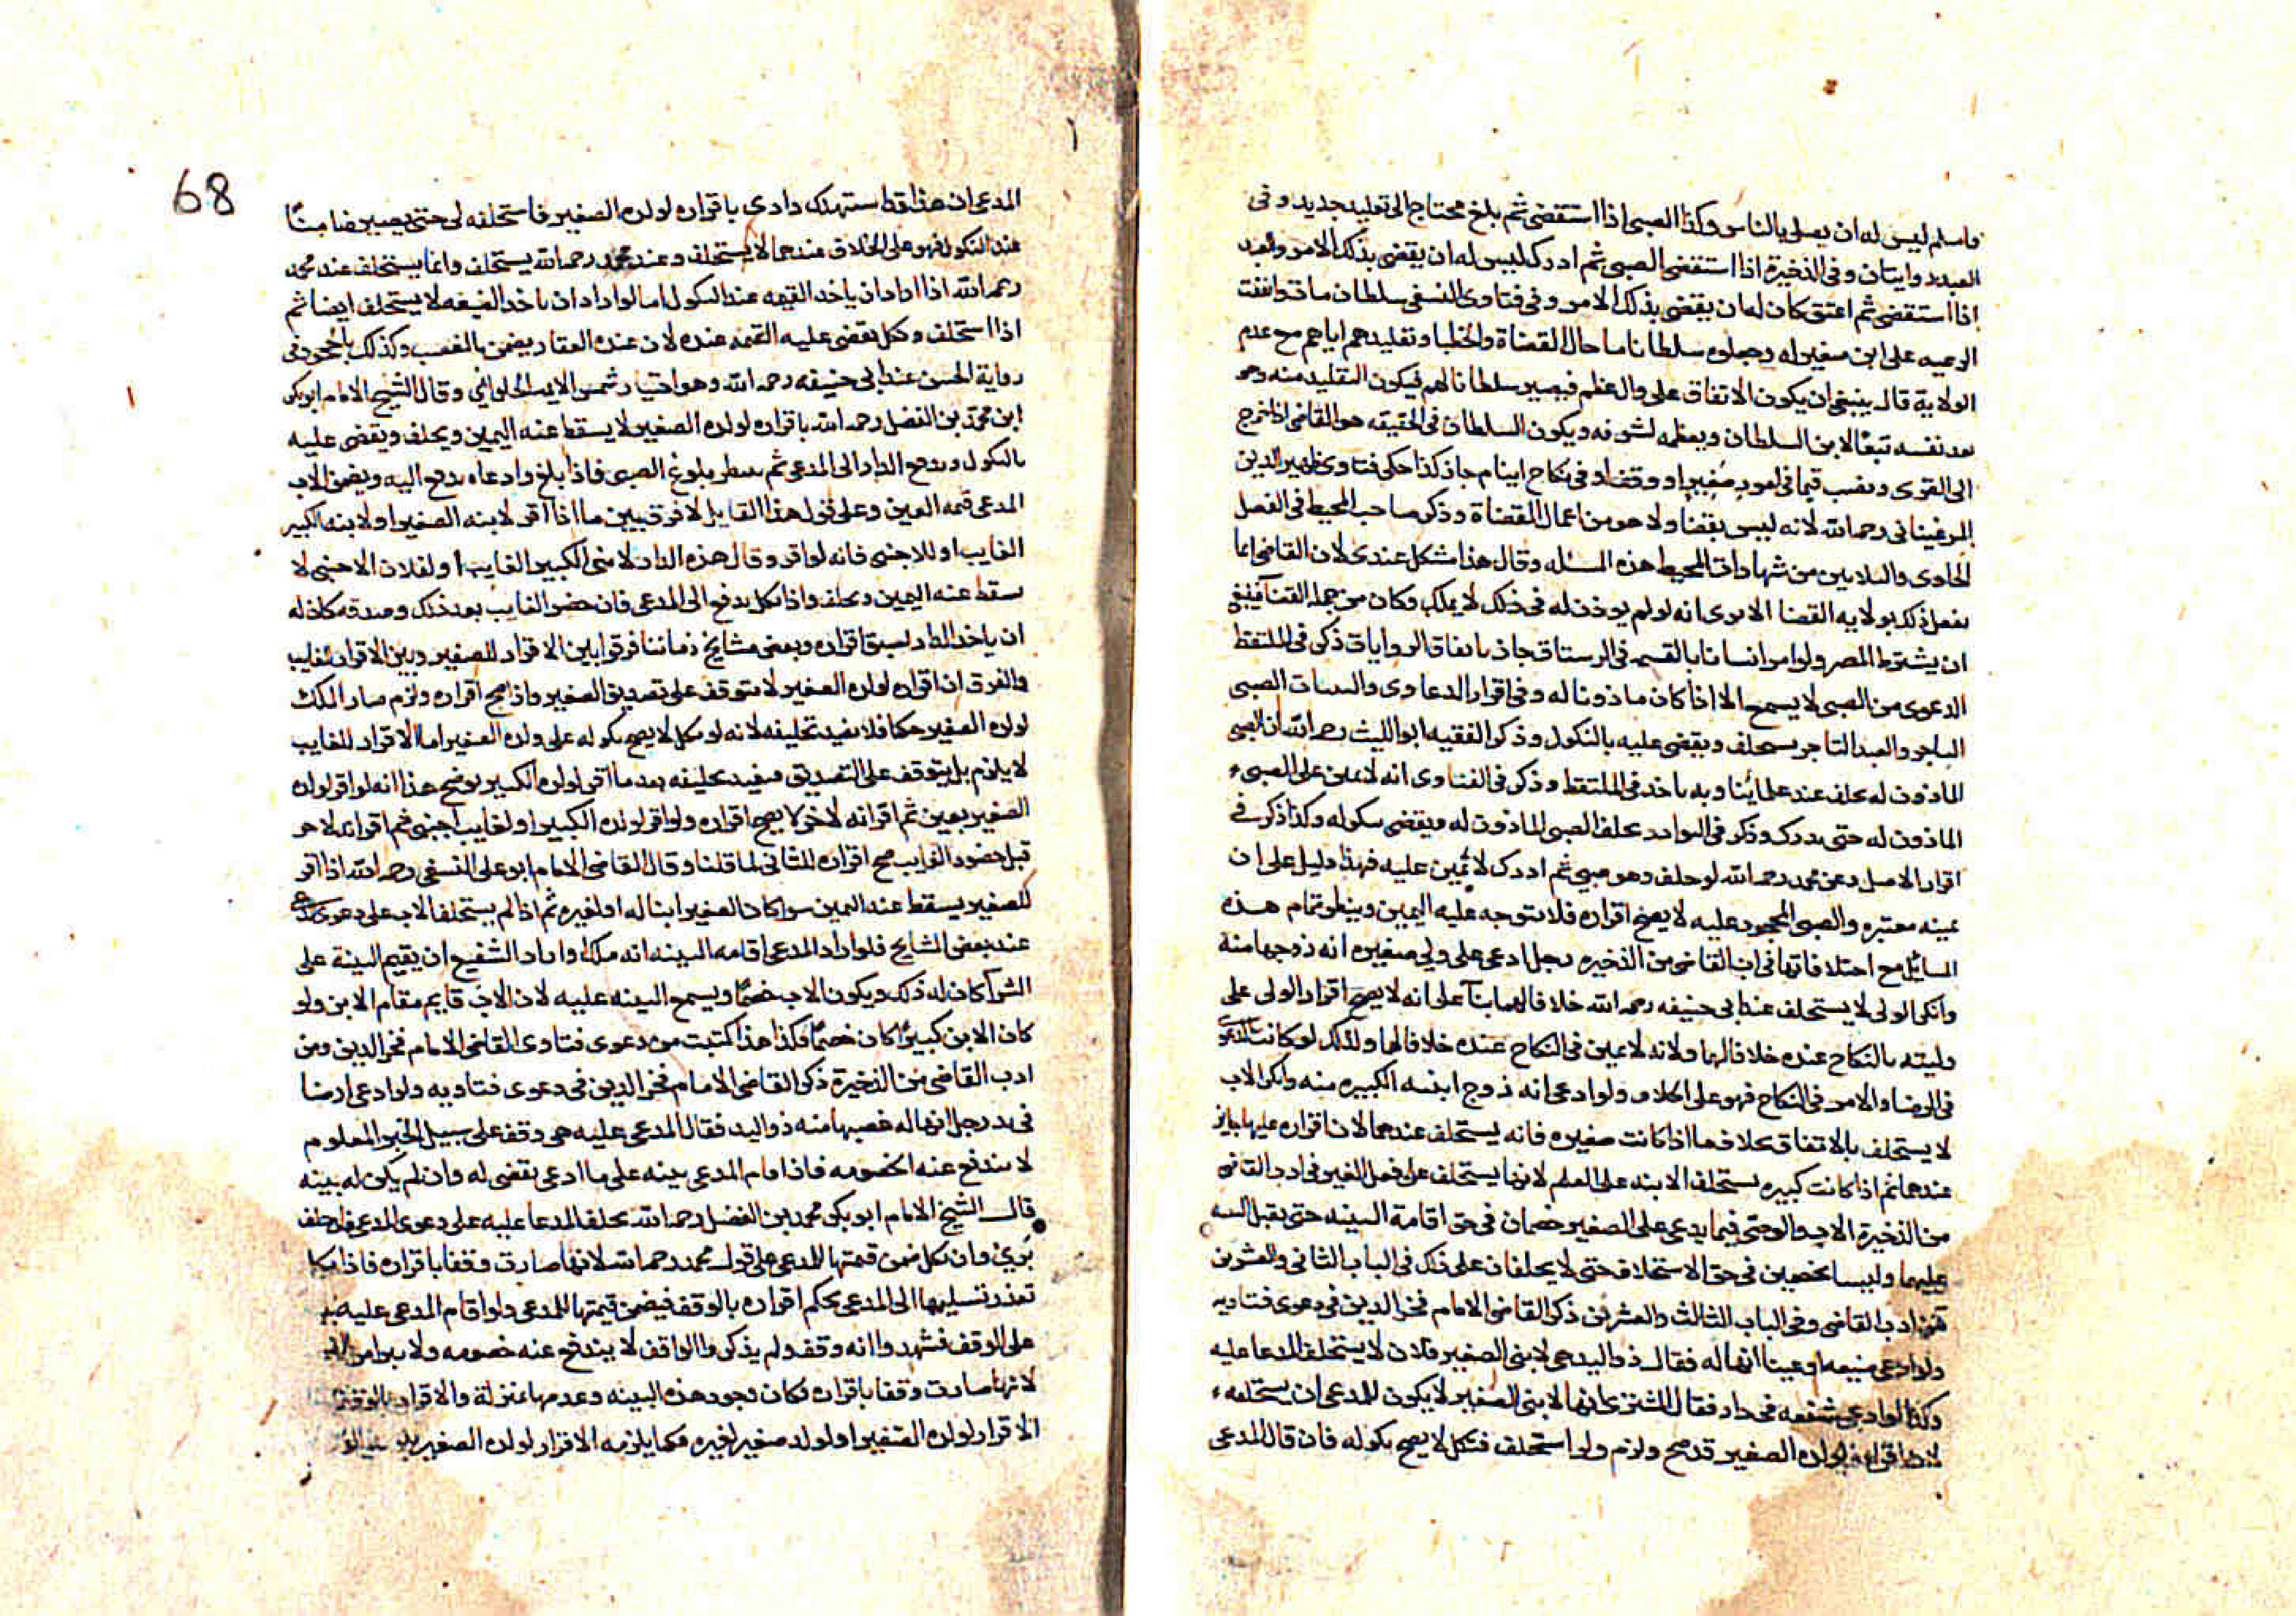 فاسلم ليس له ان يصلى بالناس وكذا الصبى اذا استقضى ثم بلغ يحتاج الى تقليد جديد وفى
العبد روايتان وفى الذخيرة اذا استقضى الصبى ثم ادرك ليس له ان يقضى بذلك الامر والعبد
اذا استقضى ثم اعتق كان له ان يقضى بذلك الامر وفى فتاوى النسفى سلطان مات واتفقت
الرعيه على ابن صغير له وجعلوه سلطانا ما حال القضاة والخطبا وتقليدهم اياهم مع عدم
الولاية قال ينبغى ان يكون الاتفاق على وال عظيم فيصير سلطانا لهم فيكون التقليد منه وهو
يعد نفسه تبعًا لابن السلطان ويعظمه لشرفه ويكون السلطان فى الحقيقه هو القاضى اذا خرج
الى القرى ونصب قيما فى امور صغير او وقف او فى نكاح ايتام جاز كذا حكى فتاوى ظهير الدين
المرغينانى رحمه الله لانه ليس بقضا ولا هو من اعمال القضاة وذكر صاحب المحيط فى الفصل
الحادى والثلاثين من شهادات المحيط هذه المسئله وقال هذا مشكل عندى لان القاضى انما
يفعل ذلك بولايه القضا الا يرى انه لو لم يوذن له فى ذلك لا يملك وكان من جملة القضآ فينبغى
ان يشترط المصر ولو امر انسانا بالقسمه فى الرستاق جاز باتفاق الروايات ذكره فى الملتقط
الدعوى من الصبى لا يسمع الا اذا كان ماذونا له وفى اقرار الدعاوى والبينات الصبى
التاجر والعبد التاجر يستحلف ويقضى عليه بالنكول وذكر الفقيه ابو الليث رحمه الله ان الصبى
الماذون له يحلف عند علمائنا وبه ناخذ فى الملتقط وذكر فى الفتاوى انه لا يمين على الصبىء
الماذون له حتى يدرك وذكر فى النوادر يحلف الصبى الماذون له ويقضى بنكوله وكذا ذكر فى
اقرار الاصل وعن محمد رحمه الله لو حلف وهو صبى ثم ادرك لا يمين عليه فهذا دليل على ان
يمينه معتبره والصبى المحجور عليه لا يصح اقراره فلا يتوجه عليه اليمين وينظر تمام هذه
المسائل مع اختلافاتها فى ادب القاضى من الذخيره رجل ادعى على ولى صغيره انه زوجها منة
وانكر الولى لا يستحلف عند ابى حنيفه رحمه الله خلافا لهما بنآ على انه لا يصح اقرار الولى على
وليته بالنكاح عنده خلافا لهما ولانه لا يمين فى النكاح عنده خلافا لهما ولذلك لو كانت الدعوى
فى الرضا والامر فى النكاح فهو على الخلاف ولو ادعى انه زوج ابنته الكبيره منه وانكر الاب
لا يستحلف بالاتفاق بخلاف ما اذا كانت صغيره فانه يستحلف عندهما لان اقراره عليها جايز
عندهما ثم اذا كانت كبيره يستحلف الابنه على العلم لانها يستحلف على فعل الغير فى ادب القاضى
من الذخيرة الاب والوصى فيما يدعى على الصغير خصمان فى حق اقامة البينه حتى يقبل البينه
عليهما وليسا بخصمين فى حق الاستحلاف حتى لا يحلفان على ذلك فى الباب الثانى والعشرين
من ادب القاضى وفى الباب الثالث والعشرين ذكر القاضى الامام فخر الدين فى دعوى فتاويه
ولو ادعى ضيعه او عينا انها له فقال ذو اليد هى لابنى الصغير فلان لا يستحلف المدعا عليه
وكذا لو ادعى شفعه فى دار فقال المشترى انها لابنى الصغير لا يكون للمدعى ان يستحلفهء
لان اقراره لولده الصغير قد صح ولزم ولو استحلف فنكل لا يصح نكوله فان قال المدعى
68
المدعى ان هذا قد استهلك دارى باقراره لولده الصغير فاستحلفه لى حتى يصير ضامنًا
عند النكول فهو على الخلاف عندهما لا يستحلف وعند محمد رحمه الله يستحلف وانما يستحلف عند محمد
رحمه الله اذا اراد ان ياخذ القيمه عند النكول اما لو اراد ان ياخذ الضيعه لا يستحلف ايضا ثم
اذا استحلف ونكل يقضى عليه القيمه عنده لان عنده العقار يضمن بالغصب وكذلك بالجحود فى
رواية الحسن عند ابى حنيفه رحمه الله وهو اختيار شمس الايمه الحلوائي وقال الشيخ الامام ابو بكر
ابن محمد بن الفضل رحمه الله باقراره لولده الصغير لا يسقط عنه اليمين ويحلف ويقضى عليه
بالنكول ويدفع الدار الى المدعى ثم ينتظر بلوغ الصبى فاذا بلغ وادعاه يدفع اليه ويضمن الاب
المدعى قيمه العين وعلى قول هذا القايل لا فرق بين ما اذا اقر لابنه الصغير او لابنه الكبير
الغايب او للاجنبى فانه لو اقر وقال هذه الدار لابنى الكبير الغايب او لفلان الاجنبى لا
يسقط عنه اليمين ويحلف واذا نكل يدفع الى المدعى فان حضر الغايب بعد ذلك وصدقه كان له
ان ياخذ الدار لسبق اقراره وبعض مشايخ زماننا فرقوا بين الاقرار للصغير وبين الاقرار للغايب
والفرق ان اقراره لولده الصغير لا يتوقف على تصديق الصغير واذا صح اقراره ولزم صار الملك
لولده الصغير حكما فلا يفيد تحليفه لانه لو نكل لا يصح نكوله على ولده الصغير اما الاقرار للغايب
لا يلزم بل يتوقف على التصديق فيفيد تحليفه بعد ما اقر لولده الكبير يوضح هذا انه لو اقر لولده
الصغير بعين ثم اقر انه لاخر لا يصح اقراره ولو اقر لولده الكبير او لغايب اجنبى ثم اقر انه لاخر
قبل حضور الغايب صح اقراره للثانى لما قلنا وقال القاضى الامام ابو على النسفى رحمه الله اذا اقر
للصغير يسقط عنه اليمين سوا كان الصغير ابنا له او لغيره ثم اذا لم يستحلف الاب على دعوى المدعى
عند بعض المشايخ فلو اراد المدعى اقامه البينه انه ملك او اراد الشفيع ان يقيم البينة على
الشرآ كان له ذلك ويكون الاب خصمًا ويسمع البينه عليه لان الاب قايم مقام الابن ولو
كان الابن كبيرًا كان خصمًا فكذا هذا كتبت من دعوى فتاوى القاضى الامام فخر الدين ومن
ادب القاضى من الذخيرة ذكر القاضى الامام فخر الدين فى دعوى فتاويه ولو ادعى ارضا
فى يد رجل انها له غصبها منه ذو اليد فقال المدعى عليه هى وقف على سبيل الخير المعلوم
لا يندفع عنه الخصومه فاذا اقام المدعى بينه على ما ادعى يقضى له وان لم يكن له بينه
قال الشيخ الامام ابو بكر محمد بن الفضل رحمه الله يحلف المدعا عليه على دعوى المدعى فان حلف
برئ وان نكل ضمن قيمتها للمدعى على قول محمد رحمه الله لانها صارت وقفا باقراره فاذا نكل
تعذر تسليمها الى المدعى بحكم اقراره بالوقف فيضمن قيمتها للمدعى ولو اقام المدعى عليه
على الوقف فشهدوا انه وقف ولم يذكروا الواقف لا يندفع عنه خصومه ولا يبرا من
لانها صارت وقفا باقراره فكان وجود هذه البينه وعدمها بمنزلة والاقرار بالوقف
الاقرار لولده الصغير او لولد صغير لغيره فكما يلزمه الاقرار لولده الصغير